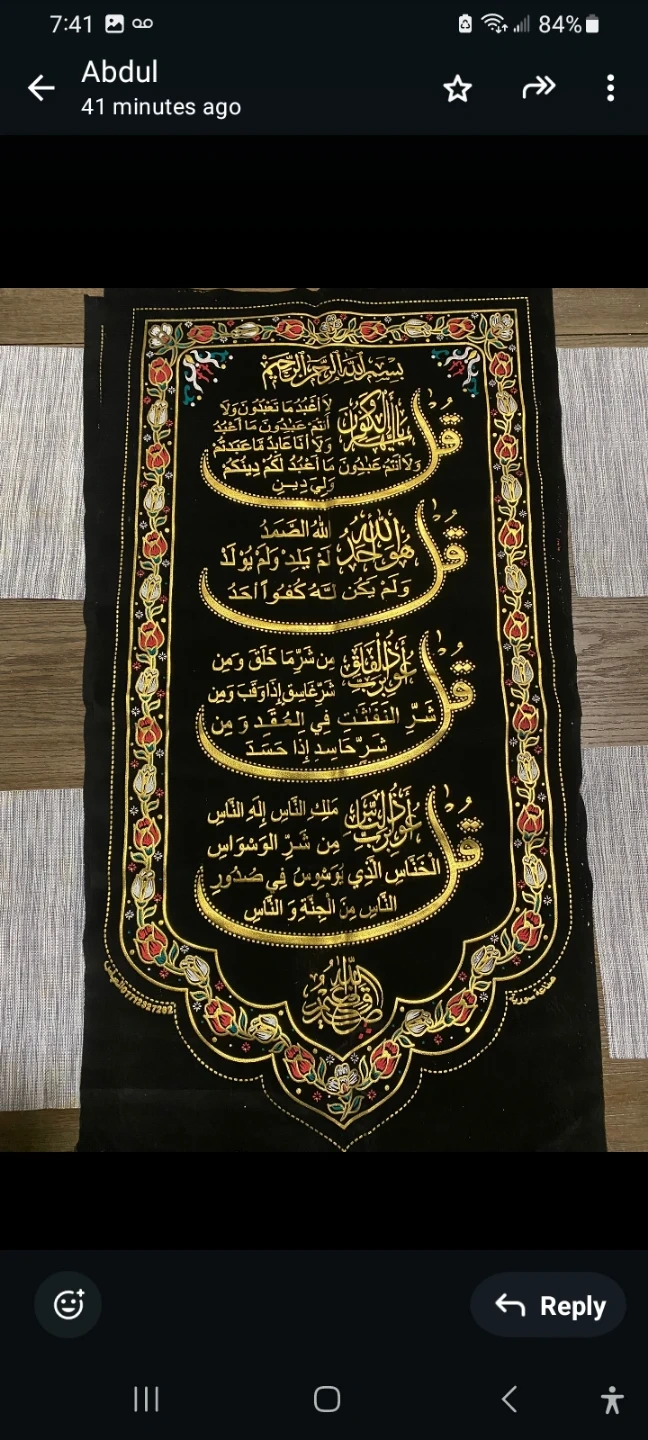 7:41
84%
Abdul
41 minutes ago
بسم الله الرحمن الرحيم
قُل يا أيها الكافرون
لَا أَعْبُدُ مَا تَعْبُدُونَ وَلَا
أَنتُمْ عَابِدُونَ مَا أَعْبُدُ
وَلَا أَنَا عَابِدٌ مَّا عَبَدتُّمْ
وَلَا أَنتُمْ عَابِدُونَ مَا أَعْبُدُ لَكُمْ دِينُكُمْ
وَلِيَ دِينِ
قُل هو الله أحد
اللهُ الصَّمَدُ
لَمْ يَلِدْ وَلَمْ يُوْلَدْ
وَلَمْ يَكُن لَهُ كُفُواً أَحَدُ
قُل أعوذ برب الفلق
مِن شَرِّ مَا خَلَقَ وَمِن
شَرِّ غَاسِقٍ إِذَا وَقَبَ وَمِن
شَرِّ النَّفَّثَتِ فِي الْعُقَدِ وَمِن
شَرِّ حَاسِدٍ إِذَا حَسَدَ
قُل أعوذ برب الناس
مَلِكِ النَّاسِ إِلَهِ النَّاسِ
مِن شَرِّ الْوَسْوَاسِ
الْخَنَّاسِ الَّذِي يُوَسْوِسُ فِي صُدُورِ
النَّاسِ مِنَ الْجِنَّةِ وَ النَّاسِ
صدق الله العظيم
صناعة سورية
Reply